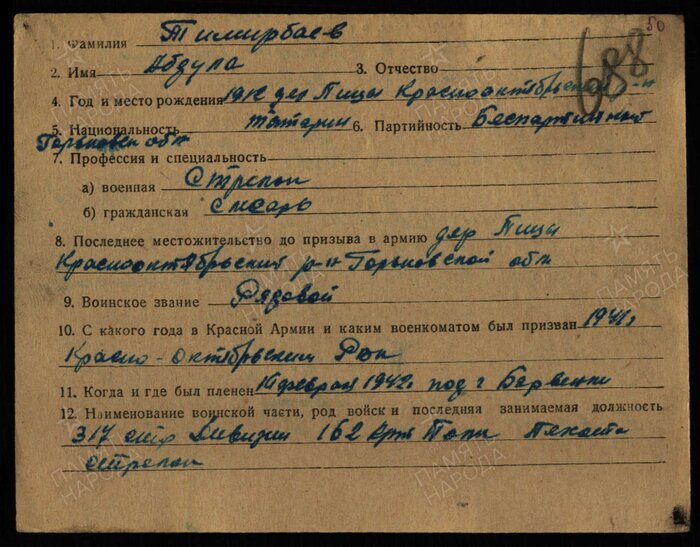 50
688
1. Фамилия Тимирбаев
2. Имя Абдула 3. Отчество
4. Год и место рождения 1912 дер Пица Краснооктябрьский р-н
5. Национальность татарин 6. Партийность Беспартийный
Горьковск обл
7. Профессия и специальность
а) военная Стрелок
б) гражданская Слесарь
8. Последнее местожительство до призыва в армию дер Пица
Краснооктябрьский р-н Горьковской обл
9. Воинское звание Рядовой
10. С какого года в Красной Армии и каким военкоматом был призван 1941г
Красно-октябрьским Рвк
11. Когда и где был пленен 14 февраля 1942г. под г
12. Наименование воинской части, род войск и последняя занимаемая должность
317 стр Дивизии 162 Полк Пехота
стрелок
ПАМЯТЬ НАРОДА